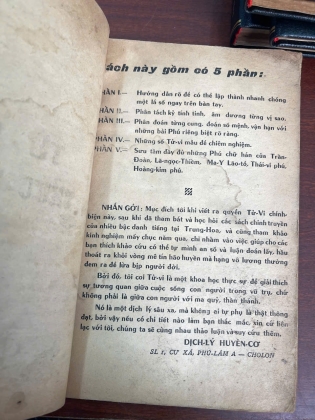 ách này gồm có 5 phần:
PHẦN I.— Hướng dẫn rõ để có thể lập thành nhanh chóng
một lá số ngay trên bàn tay.
PHẦN II.— Phân tách kỹ tính tình, âm dương từng vị sao.
PHẦN III.— Phân đoán từng cung, đoán số mệnh, vận hạn với
những bài Phú riêng biệt rõ ràng.
PHẦN IV.— Những số Tử-vi mẫu để chiêm nghiệm.
PHẦN V.— Sưu tầm đầy đủ những Phú chữ hán của Trần-
Đoàn, Lã-ngọc-Thiềm, Ma-Y Lão-tổ, Thái-sĩ phú,
Hoàng-kim phú.
NHẮN GỞI: Mục đích tôi khi viết ra quyển Tử-Vi chính-
biện này, sau khi đã tham bót và học hỏi các sách chính truyền
của nhiều bậc danh tiếng tại Trung-Hoa, và cũng tham khảo
kinh nghiệm máy chục năm qua, chỉ nhằm vào việc giúp cho các
bạn thích khảo cứu có thể tự mình an số và luận đoán lấy, hầu
thoát ra khỏi vòng mê tín hão huyền mà hạng vô lương thường
đem ra để lừa bịp người đời.
Bởi đó, tôi coi Tử-vi là một khoa học thực sự để giải thích
sự tương quan giữa cuộc sống con người trong vũ trụ, chứ
không phải là giữa con người với ma quỷ, thần thánh.
Nó là một dịch lý sâu xa, mà không ai tự phụ là thật thông
đạt, bởi vậy nếu có chi tiết nào làm bạn thắc mắc, xin cứ liên
lạc với tôi, chúng ta sẽ cùng nhau thảo luận và suy cứu thêm.
DỊCH-LÝ HUYỀN-CƠ
SL 1, CƯ XÁ, PHÚ-LÂM A — CHOLON